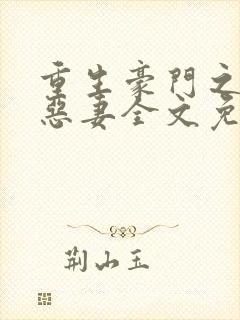 重生豪門之
惡妻全文免
荆山玉